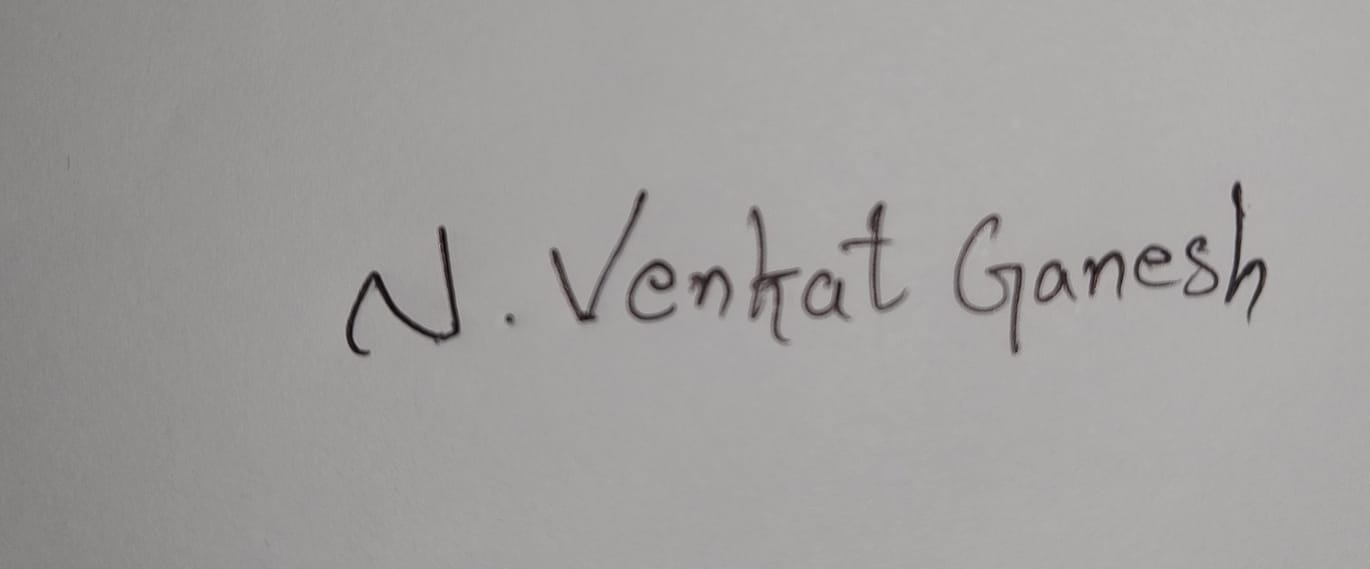 N. Venkat Ganesh